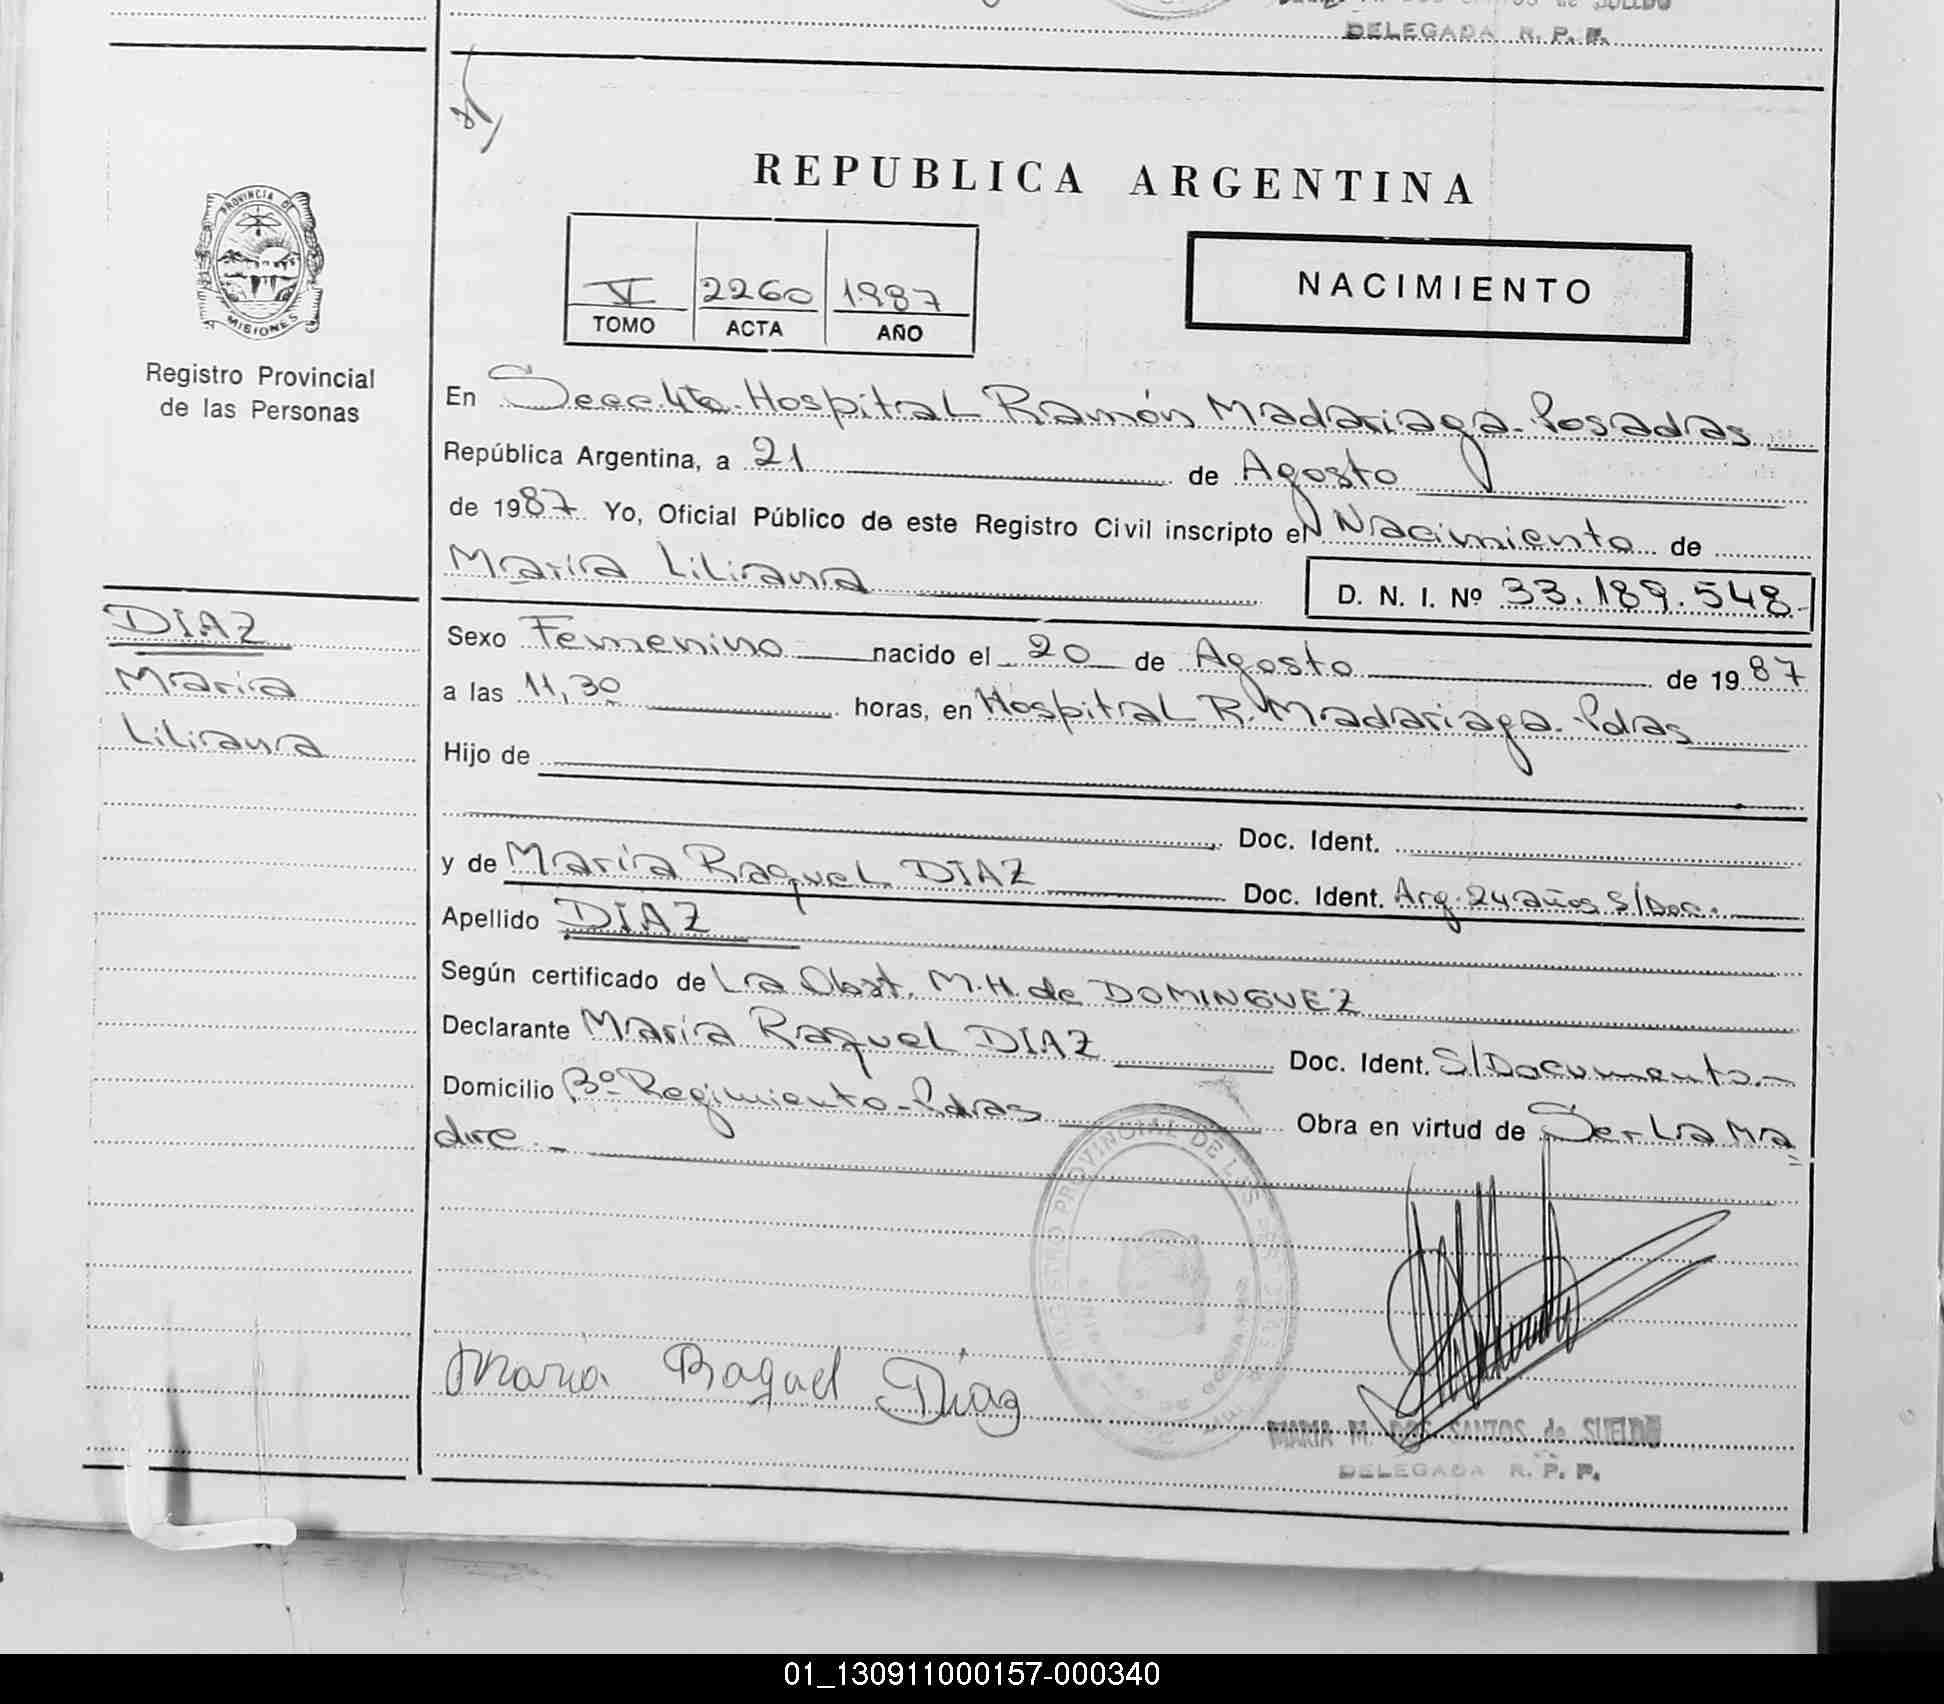 DELEGADA R. P. P.
REPUBLICA ARGENTINA
PROVINCIA DE
MISIONES
Registro Provincial
de las Personas
VI 2260 1987
TOMO ACTA AÑO
NACIMIENTO
En Secc. 4ta. Hospital Ramón Madariaga - Posadas
República Argentina, a 21 de Agosto
de 1987 Yo, Oficial Público de este Registro Civil inscripto el Nacimiento de
María Liliana
D. N. I. Nº 33.189.548
DIAZ
María
Liliana
Sexo Femenino nacido el 20 de Agosto de 1987
a las 11,30 horas, en Hospital R. Madariaga - Pdas
Hijo de
Doc. Ident.
y de María Raquel DIAZ Doc. Ident. Arg. 24 años S/Doc.
Apellido DIAZ
Según certificado de La Obst. M.H. de DOMINGUEZ
Declarante María Raquel DIAZ Doc. Ident. S/Documento.-
Domicilio Bº Regimiento - Pdas Obra en virtud de Ser La Ma
dre.-
REGISTRO PROVINCIAL DE LAS PERSONAS
Maria Raquel Diaz
MARIA M. DOS SANTOS de SUELDO
DELEGADA R. P. P.
01_130911000157-000340